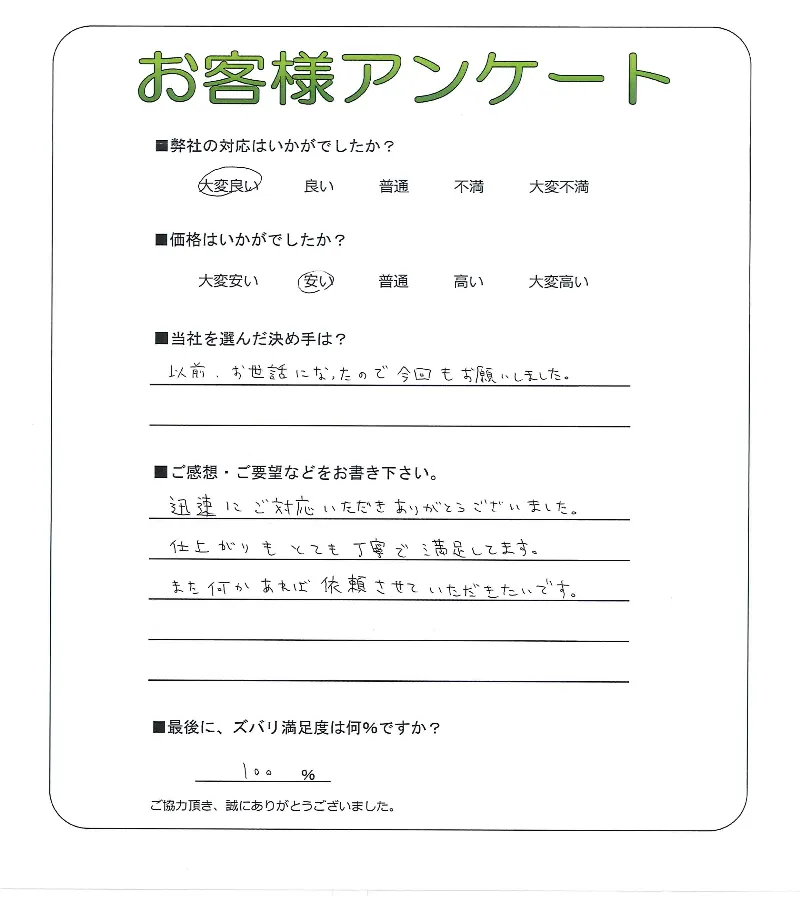 お客様アンケート
■弊社の対応はいかがでしたか？
大変良い 良い 普通 不満 大変不満
■価格はいかがでしたか？
大変安い 安い 普通 高い 大変高い
■当社を選んだ決め手は？
以前、お世話になったので今回もお願いしました。
■ご感想・ご要望などをお書き下さい。
迅速にご対応いただきありがとうございました。
仕上がりもとても丁寧で満足してます。
また何かあれば依頼させていただきたいです。
■最後に、ズバリ満足度は何%ですか？
100 %
ご協力頂き、誠にありがとうございました。